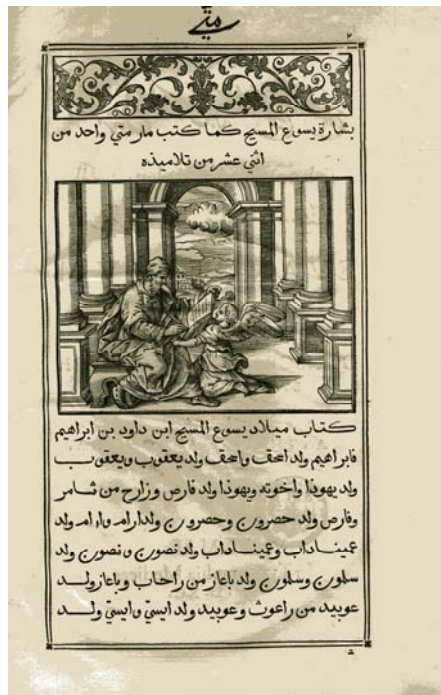 متي
٢
بشارة يسوع المسيح كما كتب مار متي واحد من
اثني عشر من تلاميذه
كتاب ميلاد يسوع المسيح ابن داود بن ابراهيم
فابراهيم ولد اسحق واسحق ولد يعقوب ويعقوب
ولد يهوذا واخوته ويهوذا ولد فارص وزارح من ثامر
وفارص ولد حصرون وحصرون ولد ارام وارام ولد
عميناداب وعميناداب ولد نصون ونصون ولد
سلمون وسلمون ولد باعاز من راحاب وباعاز ولد
عوبيد من راعوث وعوبيد ولد ايسي وايسي ولد